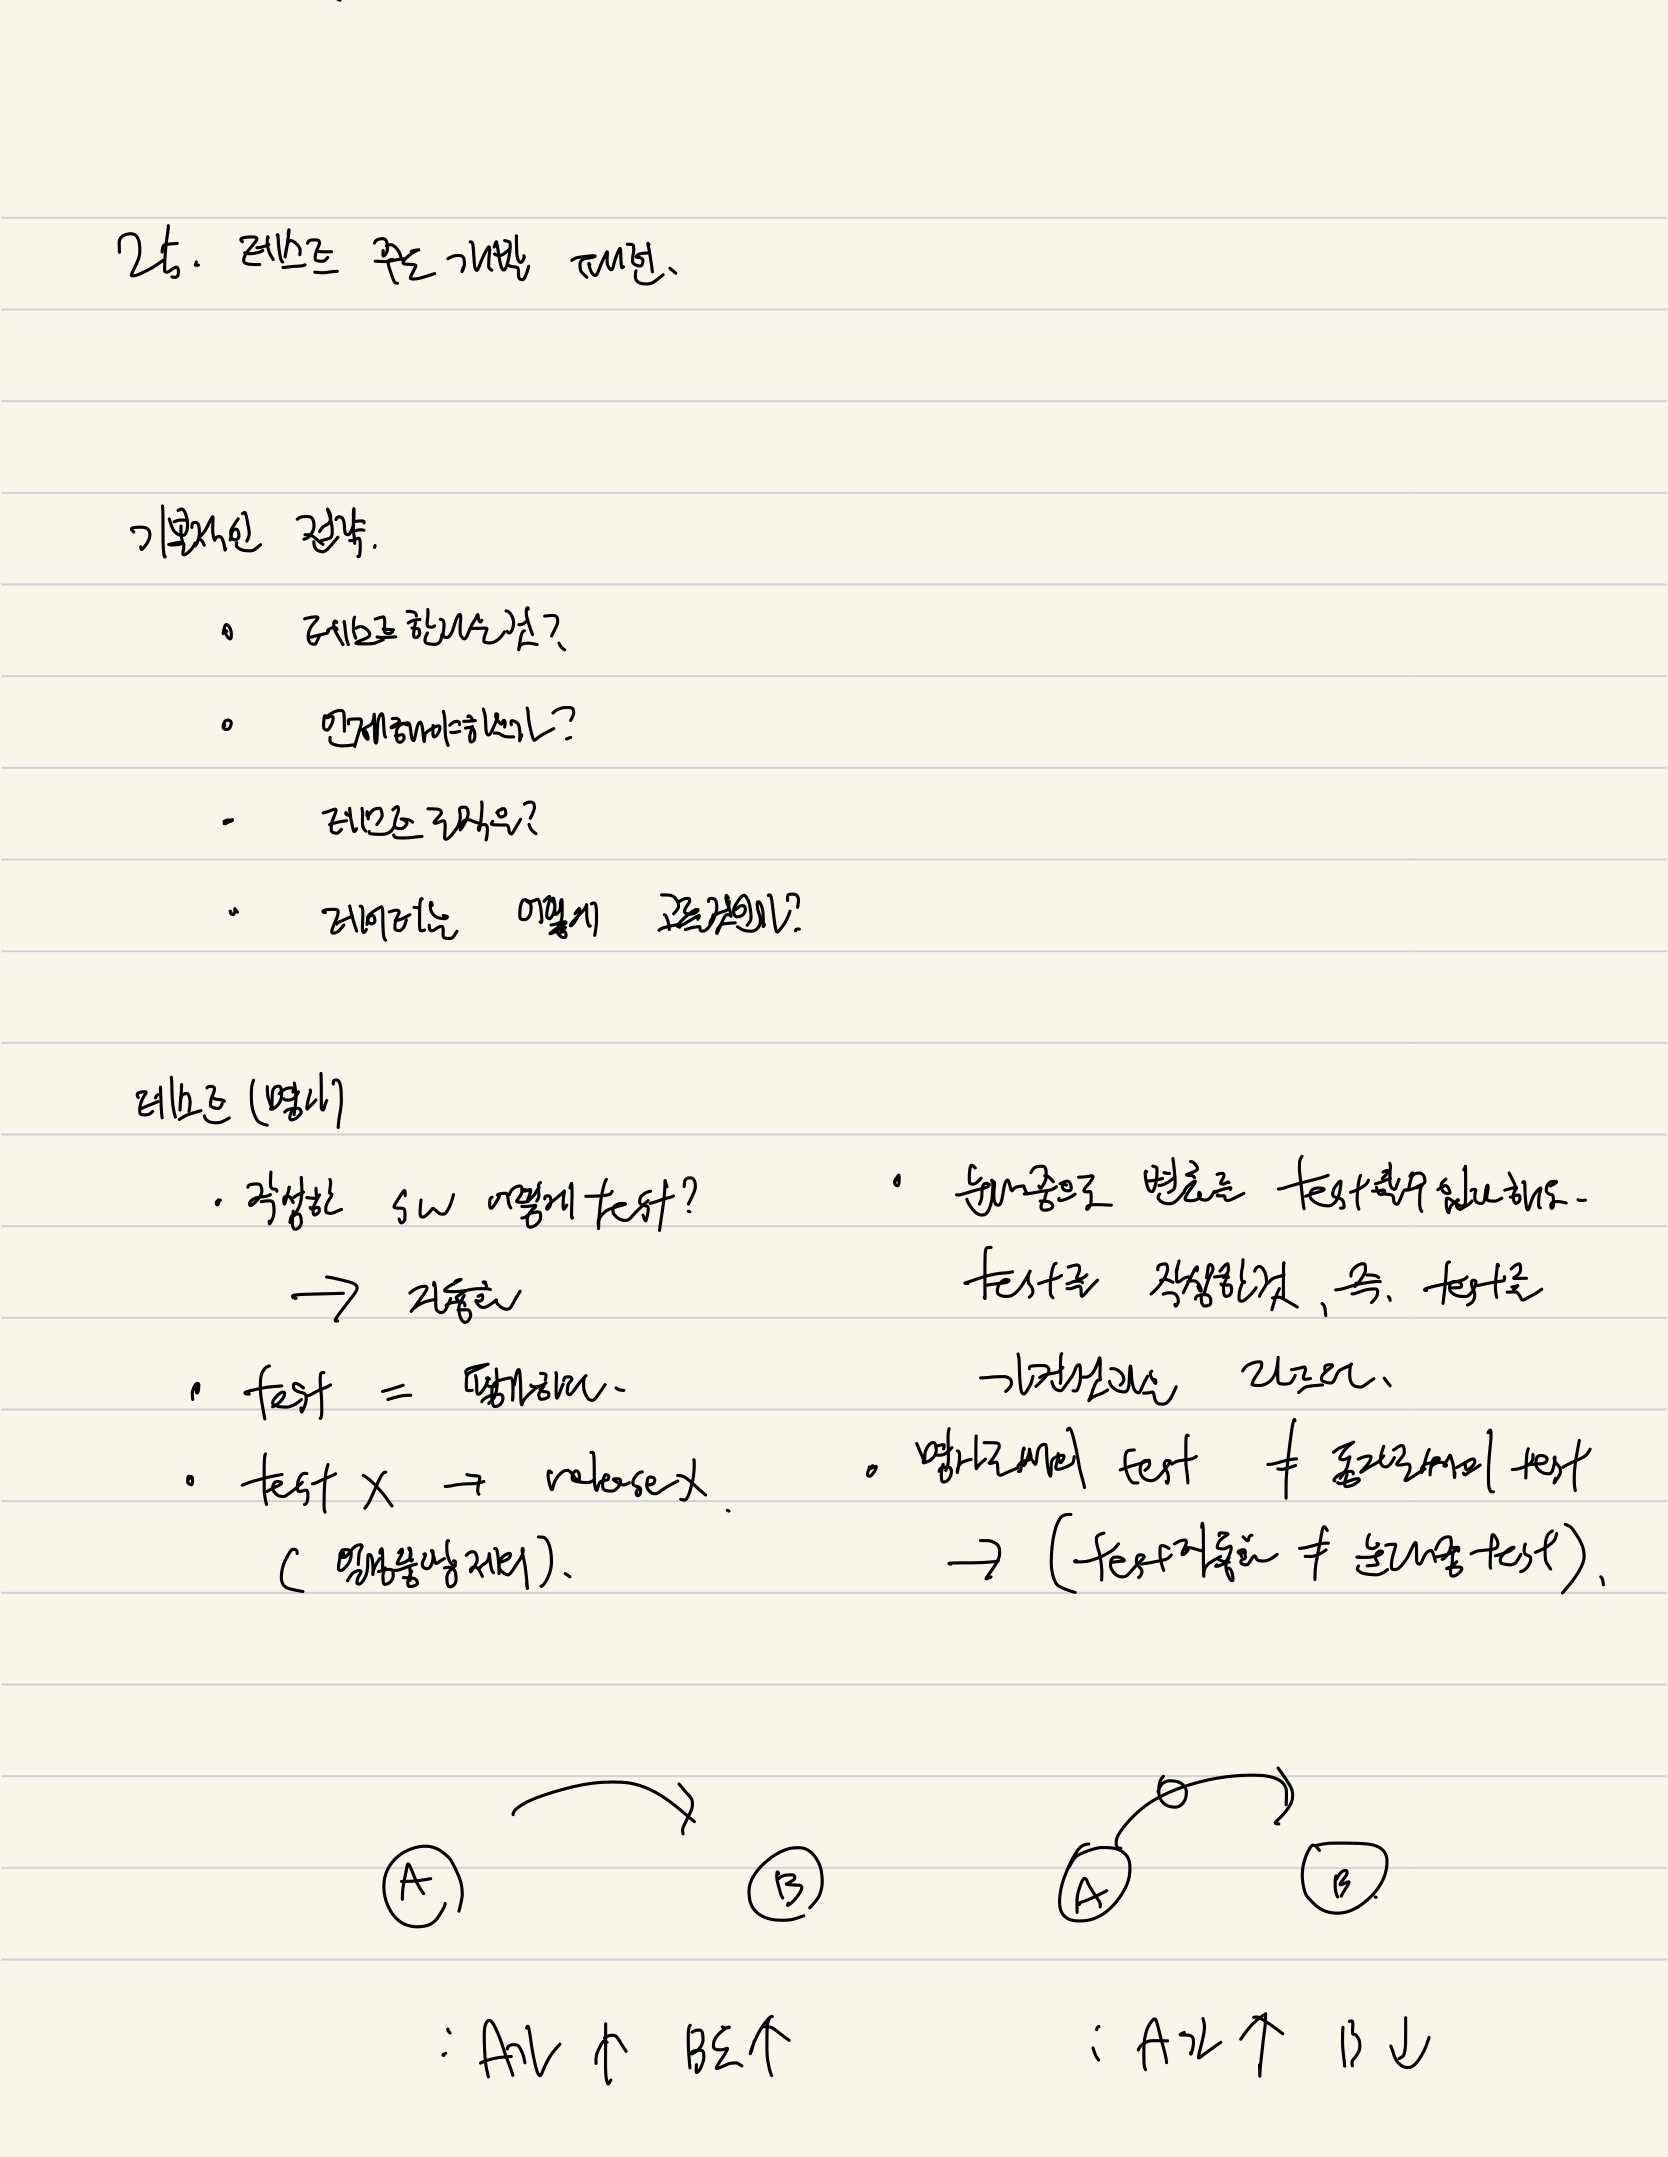 25. 테스트 주도 개발 패턴.
기본적인 전략.
◦ 테스트한다는건?
◦ 언제해야하는가?
- 테스트 로직은?
· 데이터는 어떻게 고를것인가?
테스트 (명사)
· 작성한 SW 어떻게 test?
→ 자동화
· test = 평가하다.
· test X → release X.
(오타율방 제외).
· 눈대중으로 변화를 test할수 있다 해도.
test를 작성한것, 즉. test를
가진것과는 다르다.
· 명사로써의 test ≠ 동사로써의 test
→ (test자동화 ≠ 눈대중 test).
A B
A B
: A가 ↑ B도 ↑
: A가 ↑ B ↓